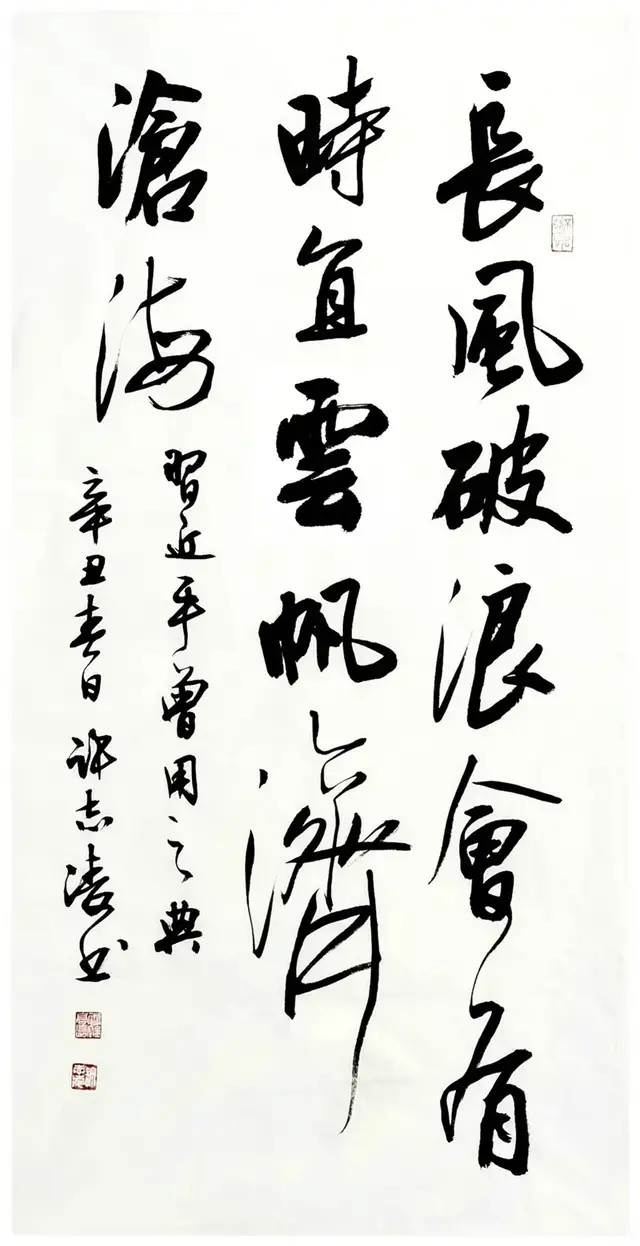 長風破浪會有
時直雲帆濟
滄海
習近平曾用之典
辛丑春日許志凌书